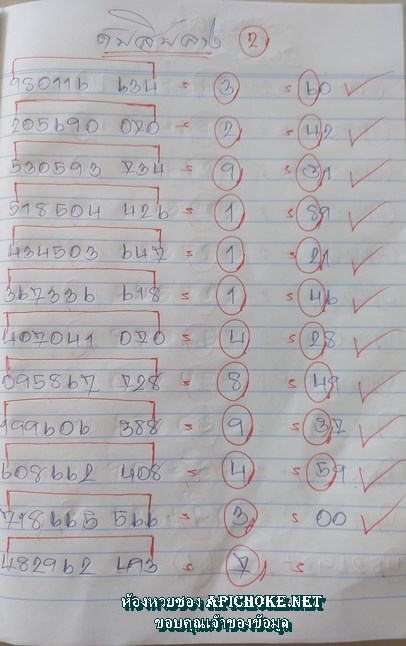 ดับสิบล่าง 2
980116 634 = 3 = 60
205690 070 = 2 = 42
530593 734 = 9 = 31
518504 426 = 1 = 89
434503 647 = 1 = 21
367336 618 = 1 = 46
407041 070 = 4 = 28
095867 728 = 8 = 49
199606 388 = 9 = 37
608662 408 = 4 = 59
718665 566 = 3 = 00
482962 493 = 7 =
ห้องหวยซอง APICHOKE.NET
ขอบคุณเจ้าของข้อมูล